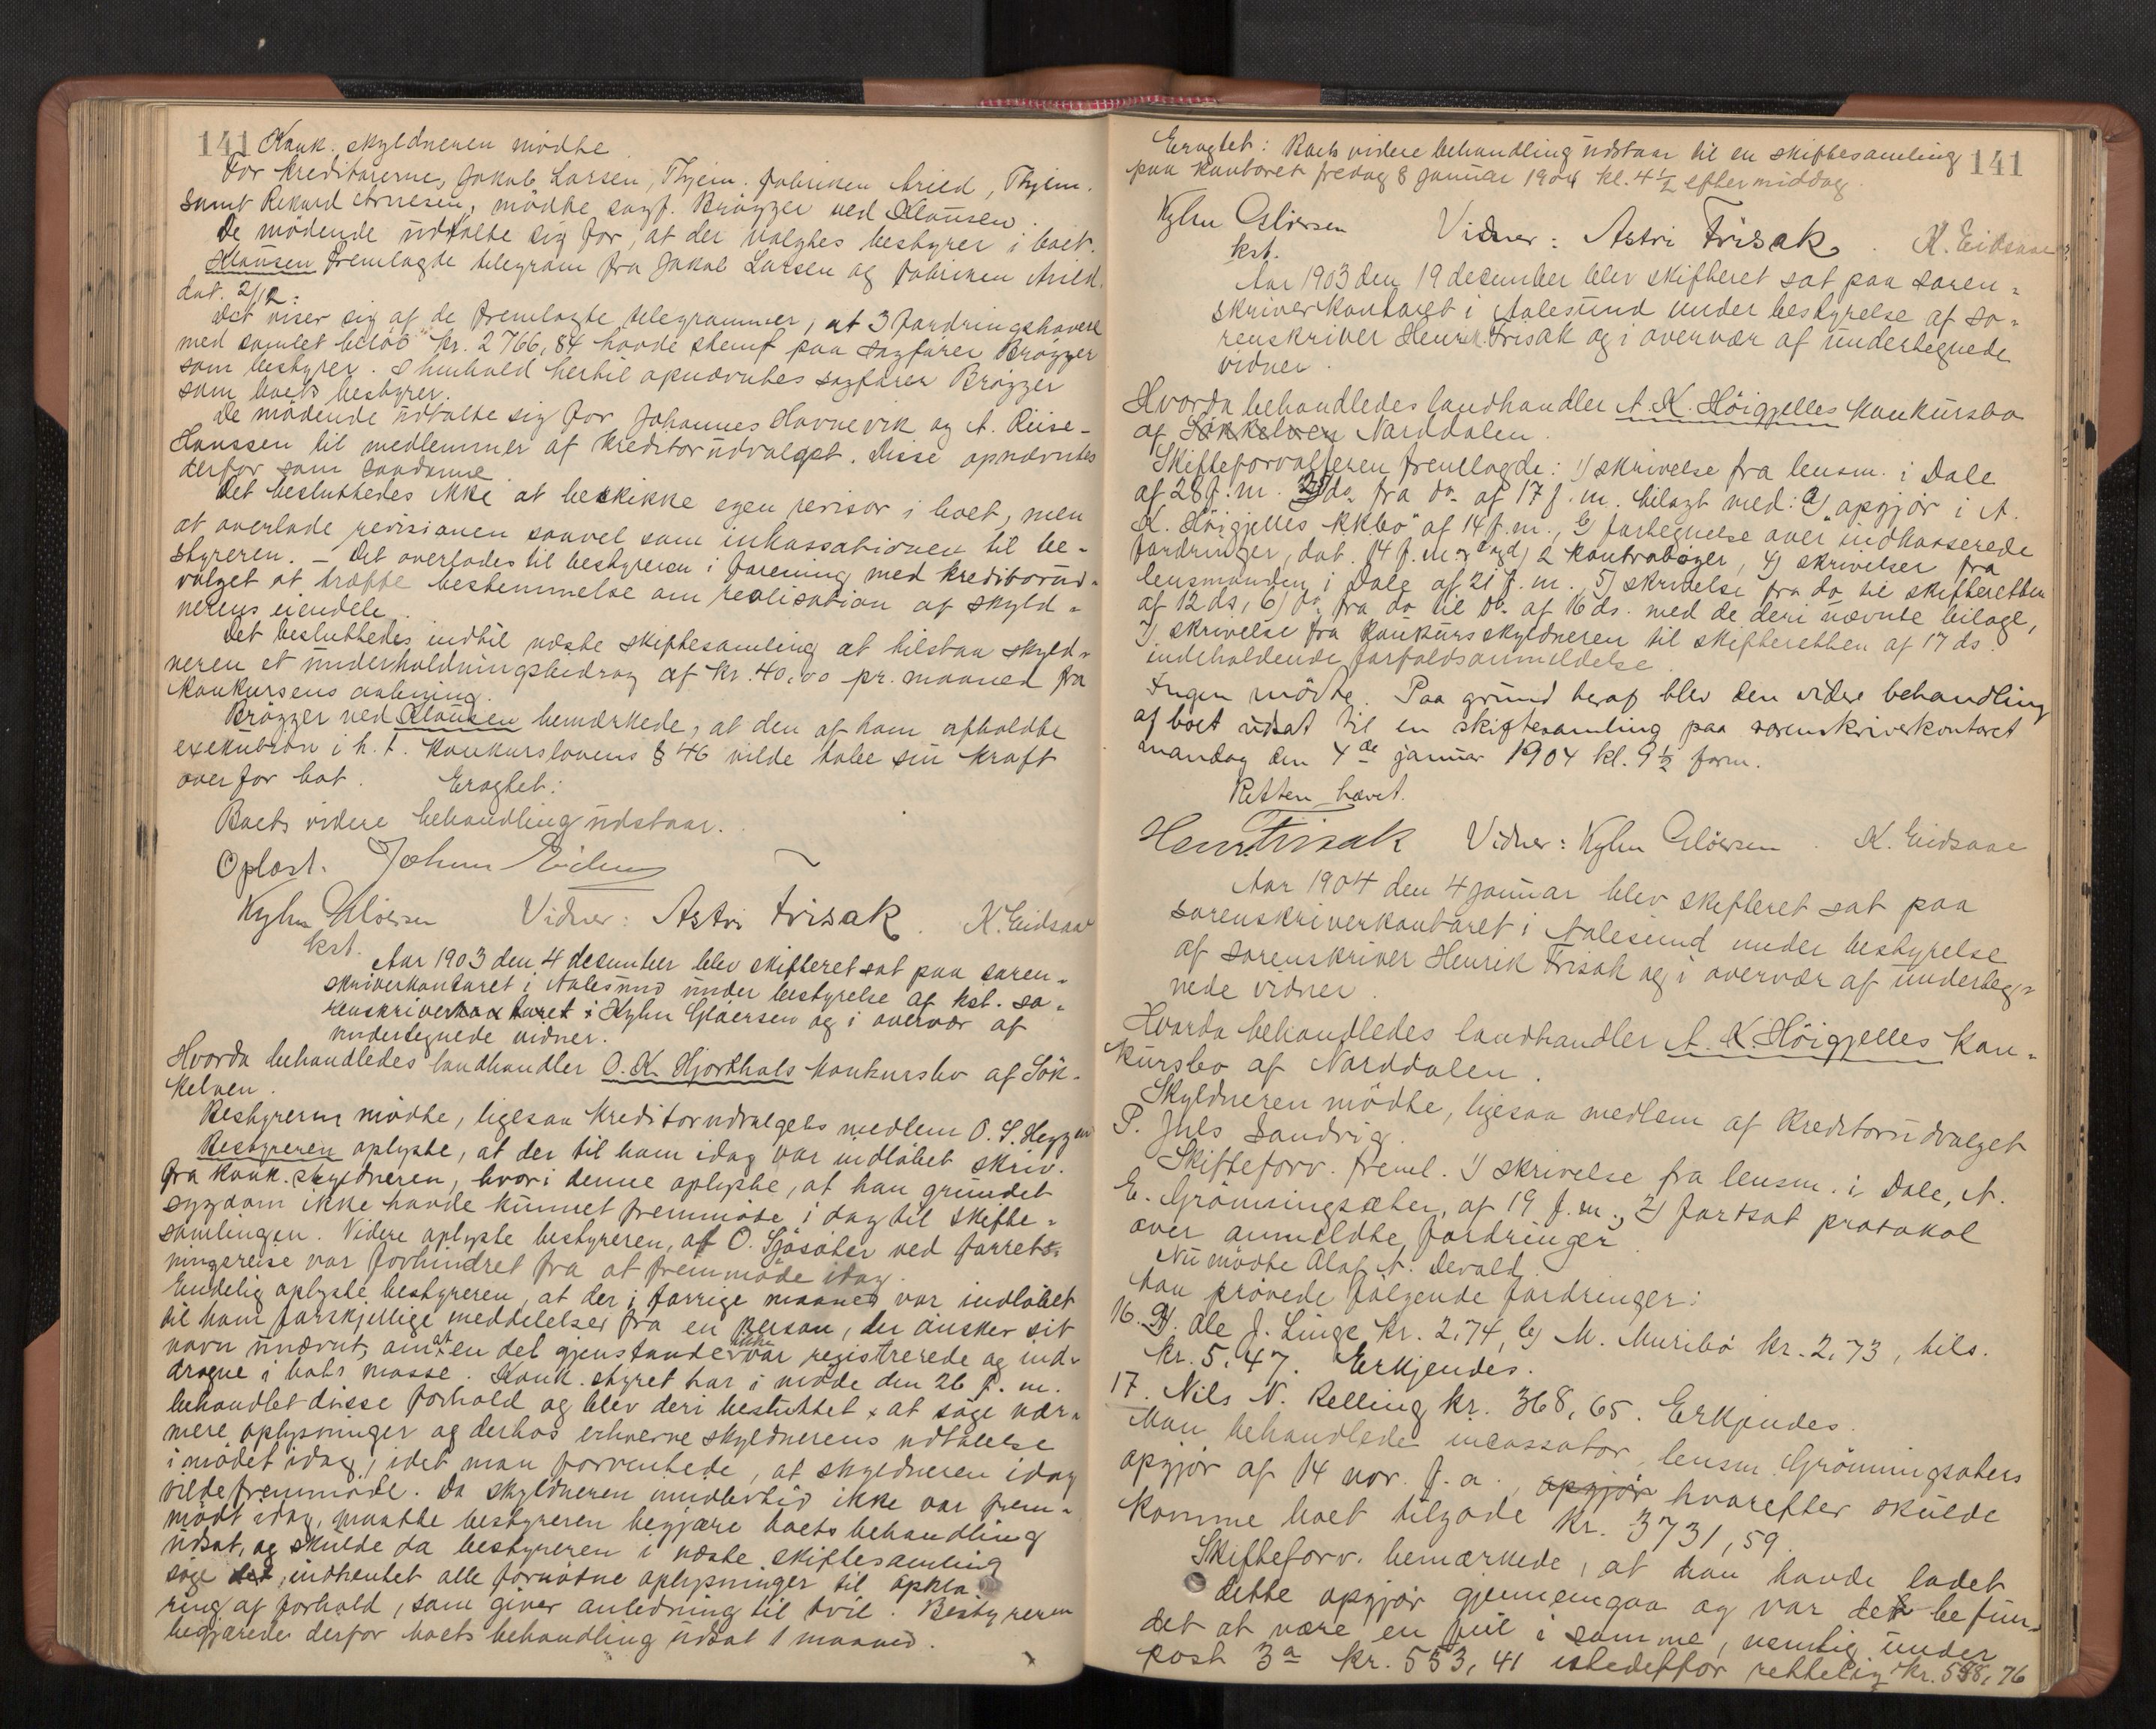 141 Konk. skyldneren mødte.
For kreditorerne, Jakob Larsen, Thjem. fabriken Arild, Thjem.
samt Rikard Arnesen, mødte sagf. Brøgger ved Clausen.
De mødende udtalte sig for, at der valgtes bestyrer i boet.
Clausen fremlagde telegram fra Jakob Larsen og fabriken Arild.
dat. 2/12:
Det viser sig af de fremlagte telegrammer, at 3 fordringshavere
med samlet beløb kr. 2766,84 havde stemt paa sagfører Brøgger
som bestyrer. I henhold hertil opnævntes sagfører Brøgger
som boets bestyrer.
De mødende udtalte sig for Johannes Havnevik og A. Riise-
Hanssen til medlemmer af kreditorudvalget. Disse opnævntes
derfor som saadanne.
Det besluttedes ikke at beskikke egen revisor i boet, men
at overlade revisionen saavel som inkassationen til be-
styreren. – Det overlodes til bestyreren i forening med kreditorud-
valget at træffe bestemmelse om realisation af skyld-
nerens eiendele.
Det besluttedes indtil næste skiftesamling at tilstaa skyld-
neren et underholdningsbidrag af kr. 40,00 pr. maaned fra
konkursens aabning.
Brøgger ved Clausen bemærkede, at den af ham afholdte
exekution i h. t. konkurslovens § 46 vilde tabe sin kraft
overfor bot. Eragtet:
Boets videre behandling udstaar.
Oplæst. Johan Eidem
Kyhn Gløersen Vidner: Astri Frisak. K. Eidsaae
kst.
Aar 1903 den 4 desember blev skifteret sat paa soren-
skriverkontoret i Aalesund under bestyrelse af kst. so-
renskriver Kyhn Gløersen og i overvær af
undertegnede vidner.
Hvorda behandledes landhandler O. K. Hjorthols konkursbo af Søk-
kelven.
Bestyreren mødte, ligesaa kreditorudvalgets medlem O. S. Heggen
Bestyreren oplyste, at der til ham idag var indløbet skriv.
fra konk. skyldneren, hvori denne oplyste, at han grundet
sygdom ikke havde kunnet fremmøde i dag til skifte-
samlingen. Videre oplyste bestyreren, at O. Sjøsæter ved forret-
ningsreise var forhindret fra at fremmøde idag.
Endelig oplyste bestyreren, at der i forrige maaned var indløbet
til ham forskjellige meddelelser fra en person, der ønsker sit
navn unævnt, om at en del gjenstande ikke var registrerede og ind-
dragne i bots masse. Konk. styret har i møde den 26 f. m.
behandlet disse forhold og blev deri besluttet at søge nær-
mere oplysninger og derhos erhverve skyldnerens udtalelse
i mødet idag, idet man forventede, at skyldneren idag
vilde fremmøde. Da skyldneren imidlertid ikke var frem-
mødt idag, maatte bestyreren begjære boets behandling
udsat, og skulde da bestyreren i næste skiftesamling
søge indhentet alle fornødne oplysninger til opkla-
ring af forhold, som giver anledning til tvil. Bestyreren
begjærede derfor boets behandling udsat 1 maaned.
Eragtet: Boets videre behandling udstaar til en skiftesamling 141
paa kontoret fredag 8 januar 1904 kl. 4 1/2 eftermiddag.
Kyhn Gløersen Vidner: Astri Frisak. K. Eidsaae
kst.
Aar 1903 den 19 desember blev skifteret sat paa soren-
skriverkontoret i Aalesund under bestyrelse af so-
renskriver Henrik Frisak og i overvær af undertegnede
vidner.
Hvorda behandledes landhandler A. K. Høigjelles konkursbo
af Søkkelven Norddalen.
Skifteforvalteren fremlagde: 1) skrivelse fra lensm. i Dale
af 28 f. m. 2) do fra do af 17 f. m. bilagt med: a) "opgjør i A.
K. Høigjelles kkbo" af 14 f. m., b) fortegnelse over indkasserede
fordringer, dat. 14 f. m. og c og d) 2 kontrabøger, 4) skrivelser fra
lensmanden i Dale af 21 f. m., 5) skrivelse fra do til skifteretten
af 12 ds, 6) do fra do til do af 16 ds. med de deri nævnte bilage,
7) skrivelse fra konkursskyldneren til skifteretten af 17 ds.
indeholdende forfaldsanmeldelse.
Ingen mødte. Paa grund heraf blev den videre behandling
af boet udsat til en skiftesamling paa sorenskriverkontoret
mandag den 4de januar 1904 kl. 9 1/2 form.
Retten hævet.
Henr. Frisak Vidner: Kyhn Gløersen. K. Eidsaae
Aar 1904 den 4 januar blev skifteret sat paa
sorenskriverkontoret i Aalesund under bestyrelse
af sorenskriver Henrik Frisak og i overvær af underteg-
nede vidner.
Hvorda behandledes landhandler A. K. Høigjelles kon-
kursbo af Norddalen.
Skyldneren mødte, ligesaa medlem af kreditorudvalget
P. Jules Sandvig.
Skifteforv. freml. 1) skrivelse fra lensm. i Dale, A.
E. Grønningsæter, af 19 f. m., 2) fortsat protokol
over anmeldte fordringer.
Nu mødte Olaf A. Devold.
Man prøvede følgende fordringer:
16. a). Ole J. Linge kr. 2,74, b) M. Muribø kr. 2,73, tils.
kr. 5,47. Erkjendes.
17. Nils N. Relling kr. 368,65. Erkjendes.
Man behandlede incassator, lensm. Grønningsæters
opgjør af 14 nov. f. a., opgjør hvorefter skulde
komme boet tilgode kr. 3731,59.
Skifteforv. bemærkede, at han havde ladet
dette opgjør gjennemgaa og var det befun-
det at være en feil i samme, nemlig under
post 3a kr. 553,41 istedetfor rettelig kr. 558,76